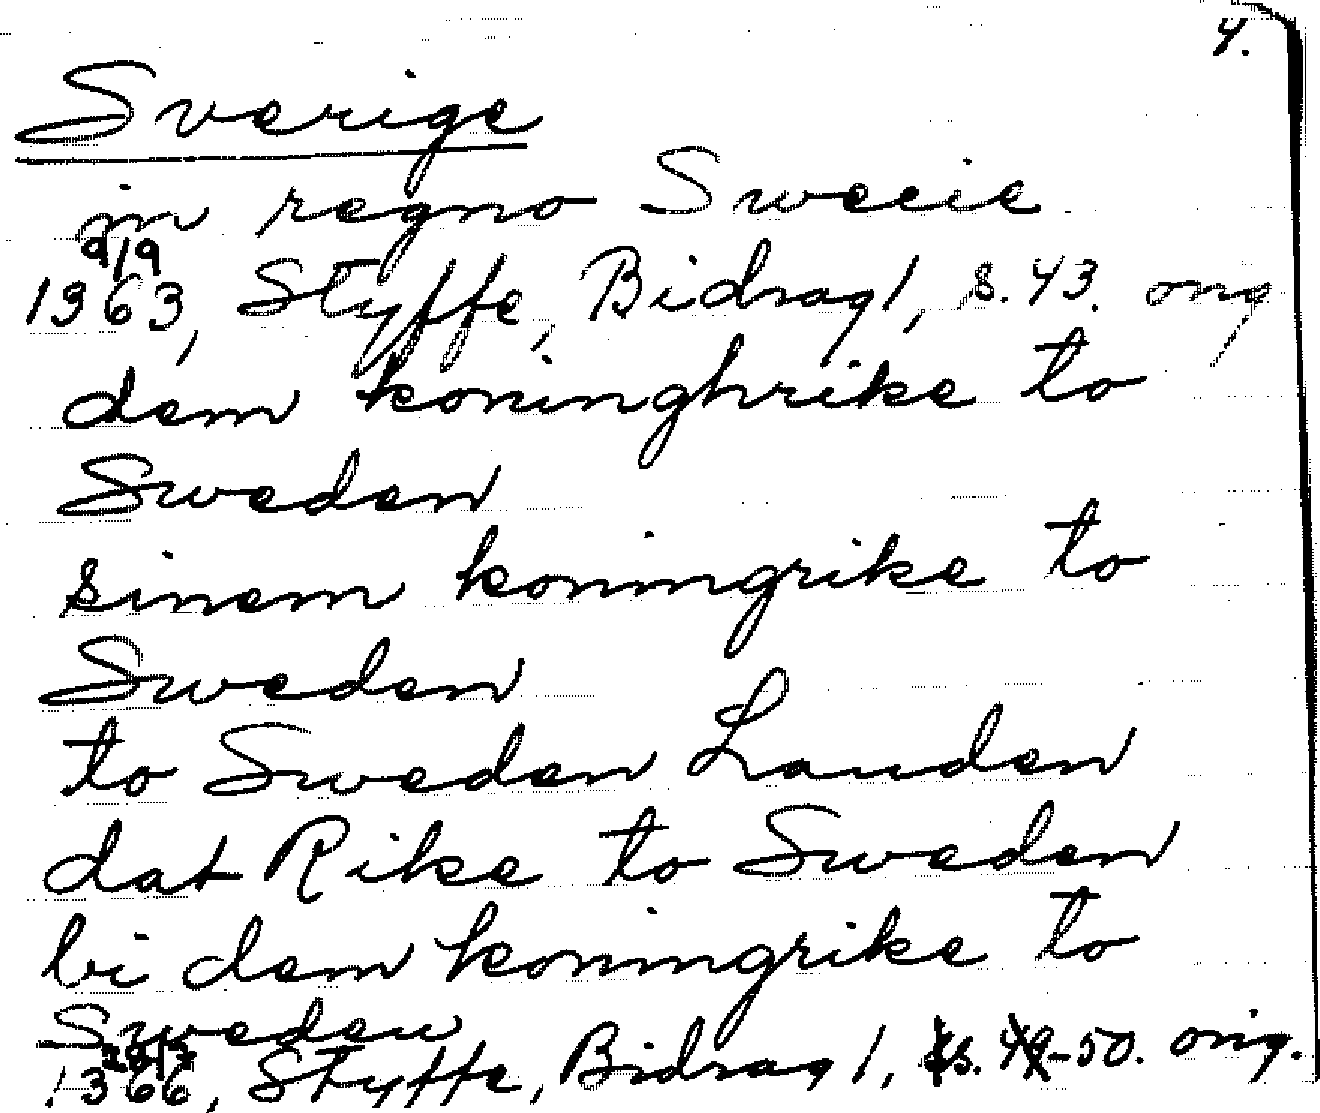 4.
Sverige
in regno Swecie
9/9
1363, Styffe, Bidrag 1, s. 43. orig
dem koninghrike to
Sweden
sinem koningrike to
Sweden
to Sweden Landen
dat Rike to Sweden
bi dem koningrike to
Sweden
1366, Styffe, Bidrag 1, s. 49-50. orig.